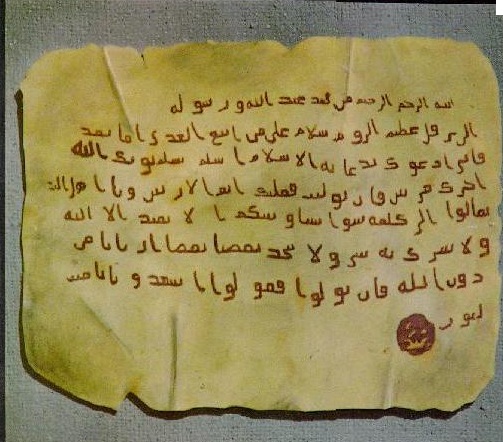 بسم الله الرحمن الرحيم من محمد عبد الله ورسوله
إلى هرقل عظيم الروم سلام على من اتبع الهدى اما بعد
فاني ادعوك بدعاية الاسلام اسلم تسلم يوتك الله
اجرك مرتين فان توليت فعليك اثم الاريسين ويا اهل الكتاب
تعالوا الى كلمة سوا بيننا وبينكم الا نعبد الا الله
ولا نشرك به شيا ولا يتخذ بعضنا بعضا اربابا من
دون الله فان تولوا فقولوا اشهدوا بانا مس
لمون